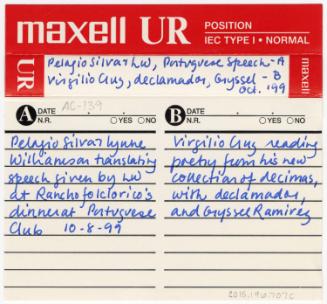 maxell UR
POSITION
IEC TYPE I • NORMAL
UR
Pelagio Silvar LW, Portuguese Speech-A
Virgilio Cruz, declamador, Gryssel - B
Oct. '99
A
DATE
AC-139
N.R.
YES
NO
Pelagio Silvar Lynne
Williamson translating
speech given by LW
at Rancho folclorico's
dinner at Portuguese
Club 10-8-99
B
DATE
N.R.
YES
NO
Virgilio Cruz reading
poetry from his new
collection of decimas,
with declamador,
and Gryssel Ramirez
2015.196.707c